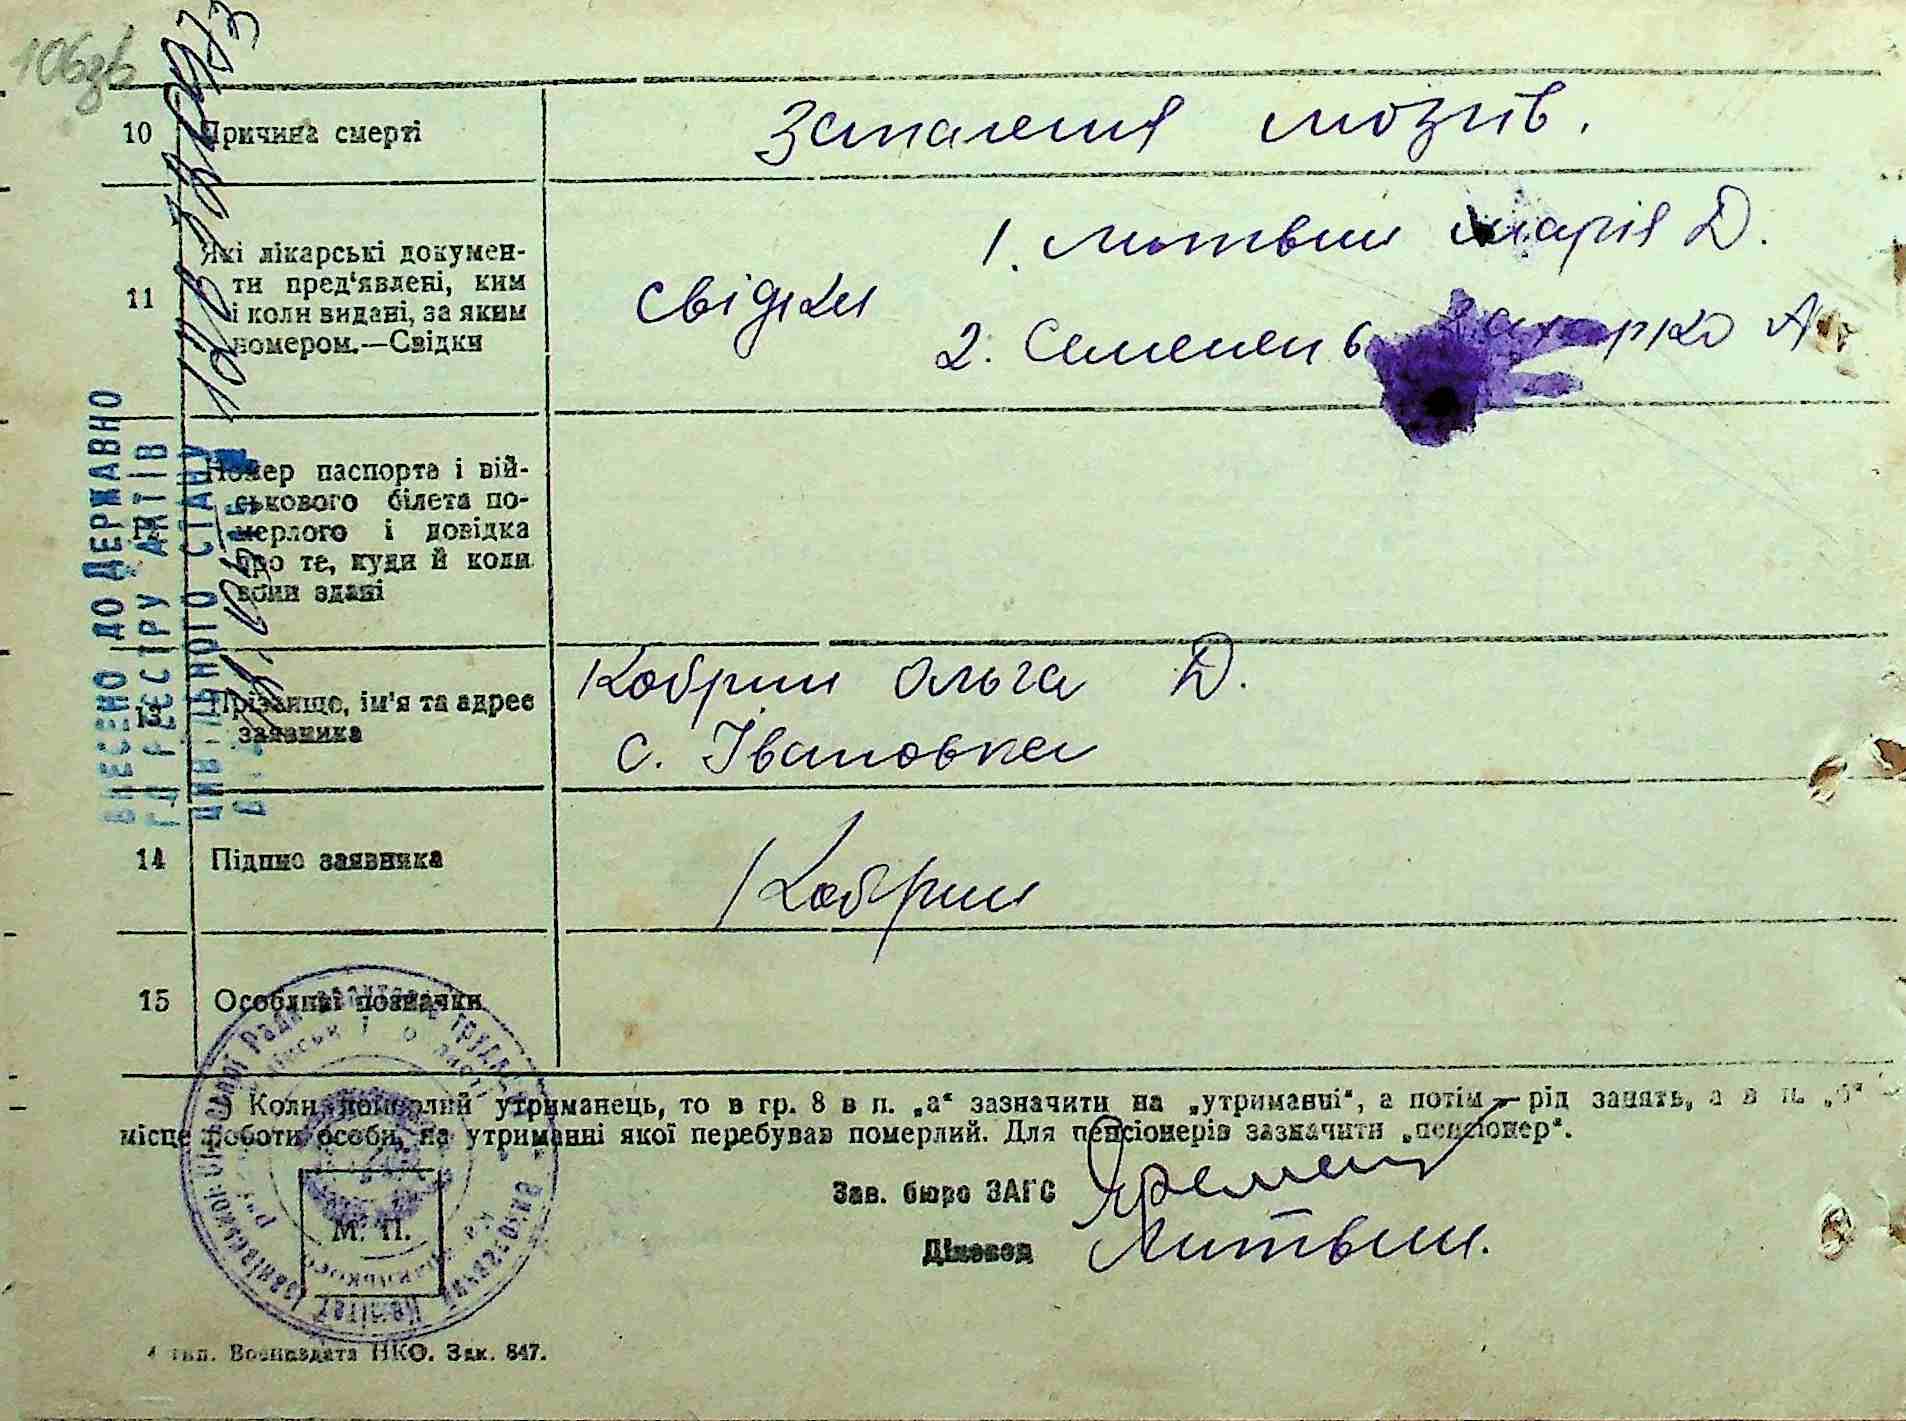 106зв
10 Причина смерті
Запалення мозків.
11 Які лікарські докумен-
ти пред'явлені, ким
і коли видані, за яким
номером.—Свідки
свідки
1. Литвин Марія Д.
2. Семенен
Номер паспорта і вій-
ськового білета по-
мерлого і довідка
про те, куди й коли
вони здані
13 Прізвище, ім'я та адрес
заявника
Кобрин Ольга Д.
с. Івановка
14 Підпис заявника
Кобрин
15 Особливі позначки
Коли померлий утриманець, то в гр. 8 в п. „а“ зазначити на „утриманні“, а потім — рід занять, а в п. „б“
місце роботи особи, на утриманні якої перебував померлий. Для пенсіонерів зазначити „пенсіонер“.
Зав. бюро ЗАГС
Діловод Литвин.
М. П.
тип. Воениздата НКО. Зак. 847.
ВНЕСЕНО ДО ДЕРЖАВНО
ГО РЕЄСТРУ АКТІВ
ЦИВІЛЬНОГО СТАНУ